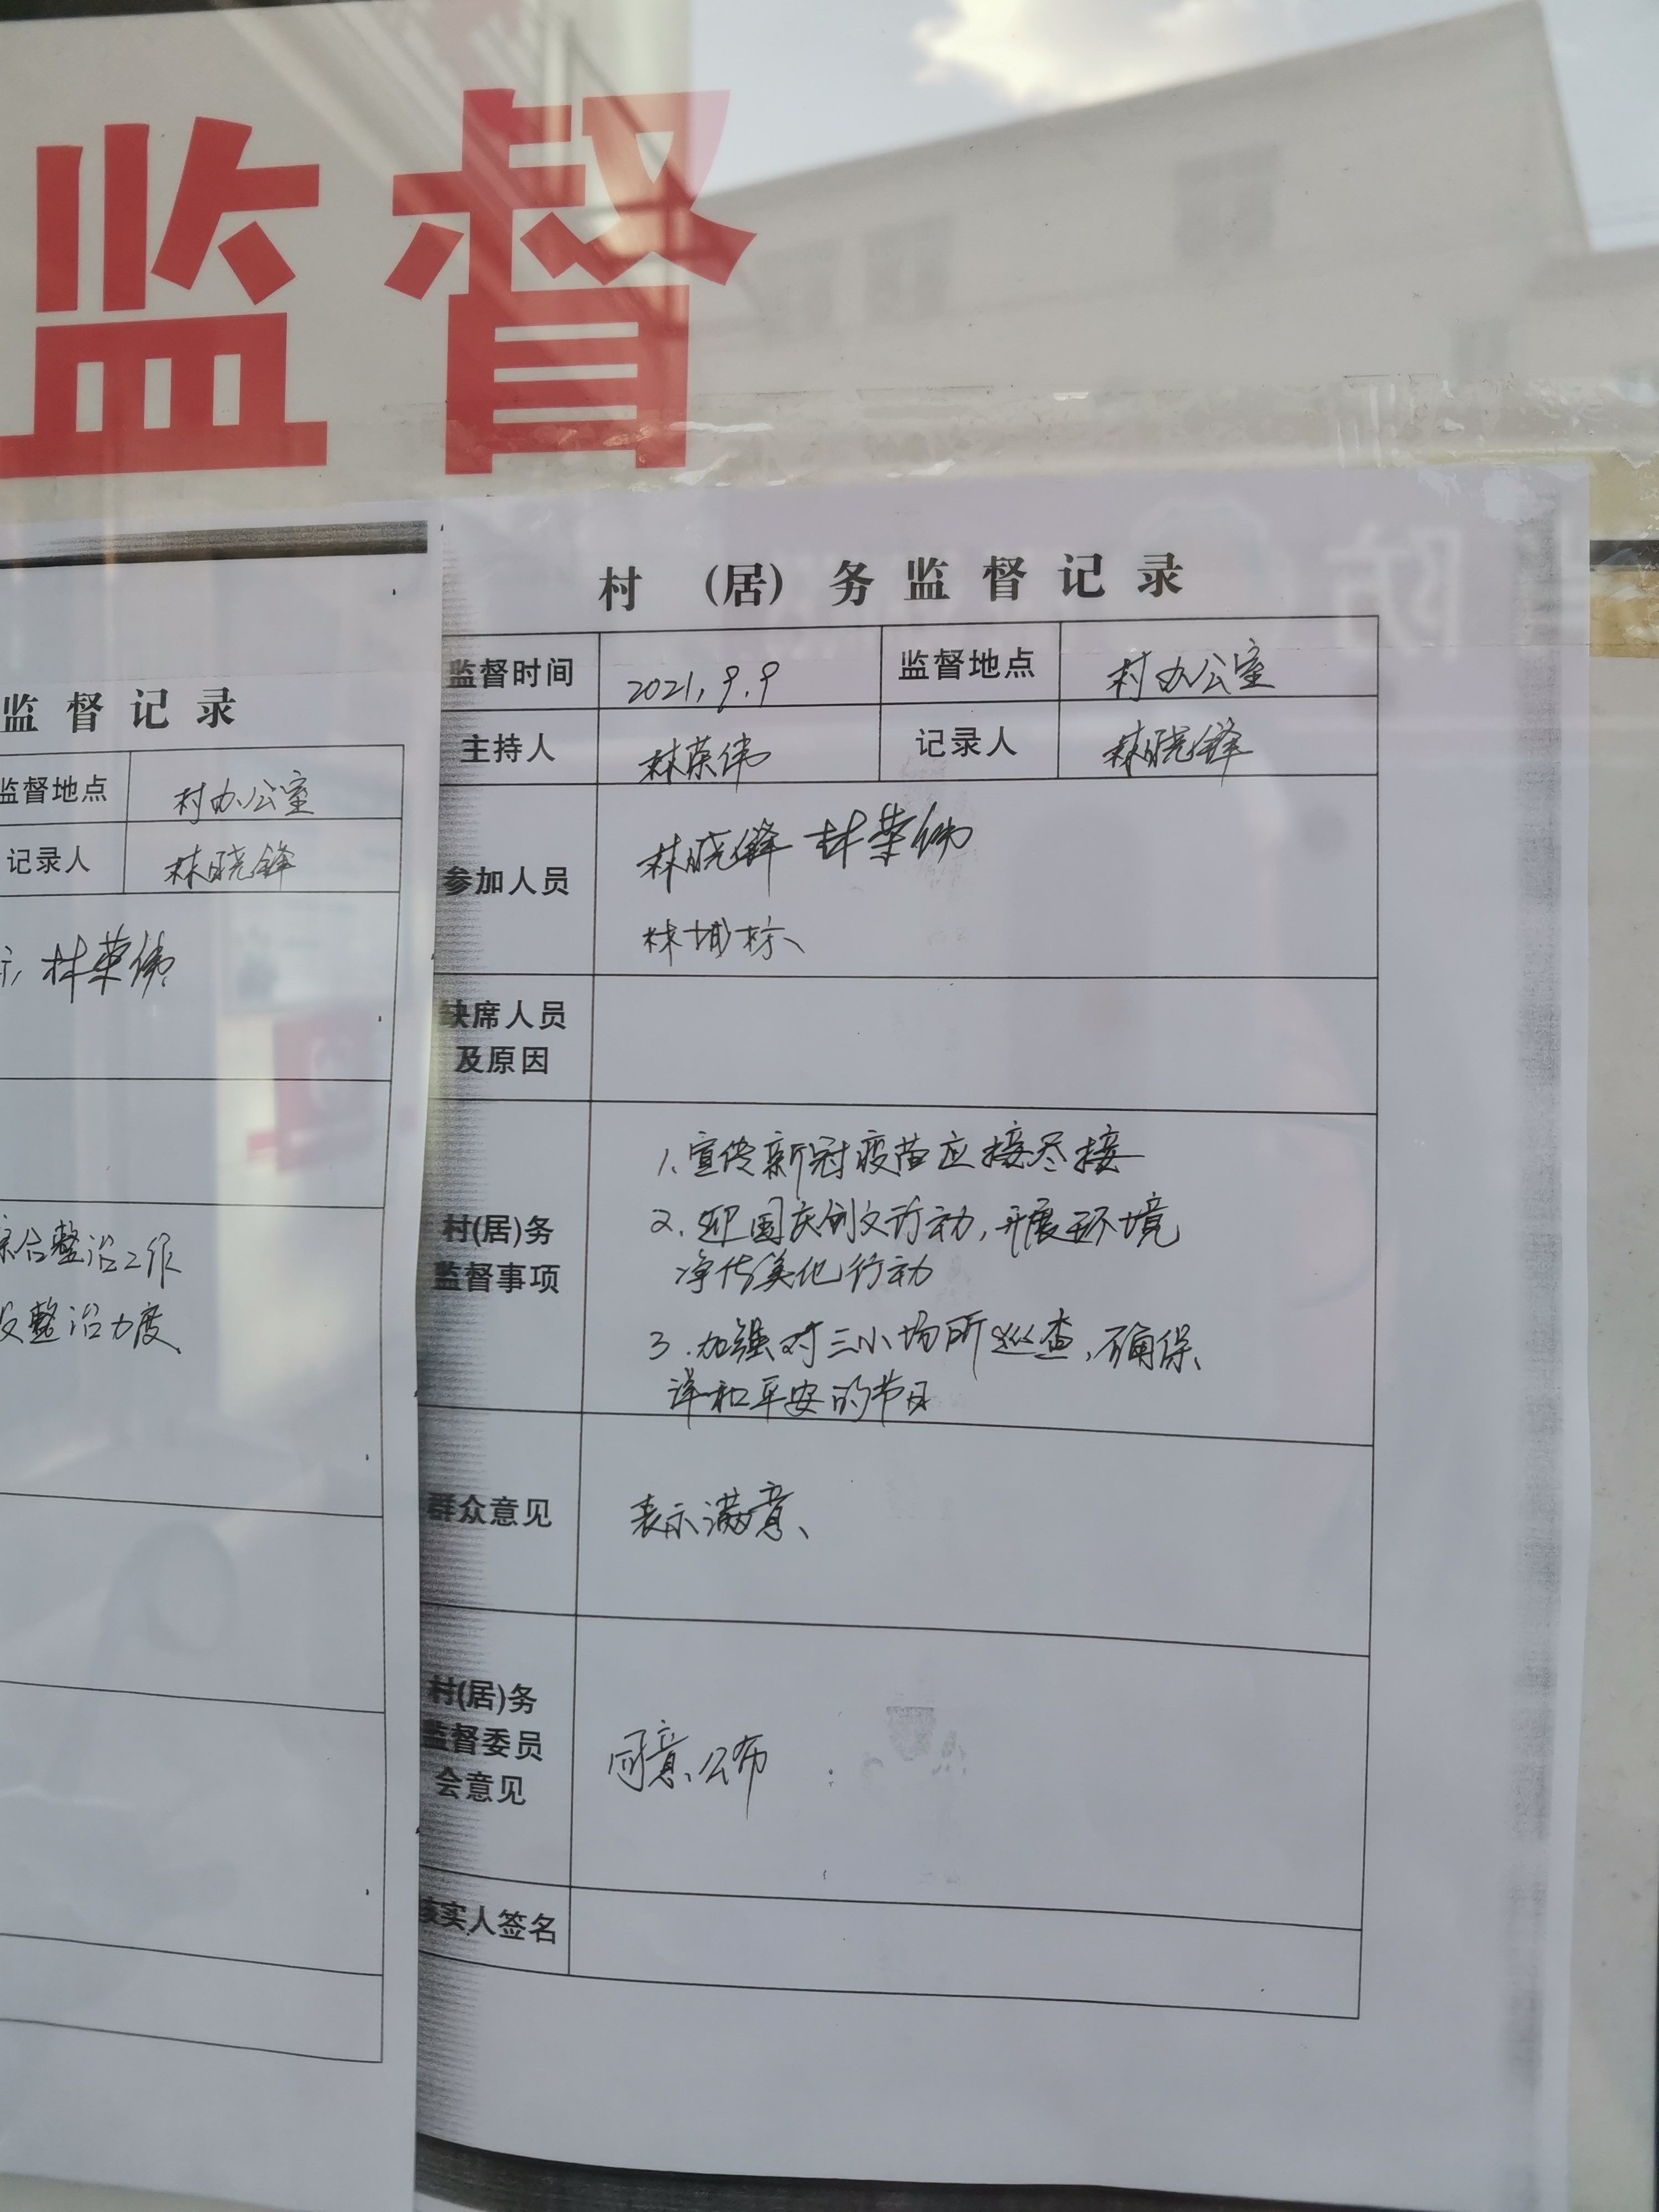 监督
监督记录
监督地点 村办公室
记录人 林晓锋
林荣伟
综合整治工作
整治力度
村(居)务监督记录
监督时间 2021.9.9 监督地点 村办公室
主持人 林荣伟 记录人 林晓锋
参加人员 林晓锋 林荣伟
林 标
缺席人员
及原因
村(居)务
监督事项
1.宣传新冠疫苗应接尽接
2.迎国庆创文行动,开展环境
净 美化行动
3.加强对三小场所巡查,确保
详和平安的节日
群众意见 表示满意
村(居)务
监督委员
会意见
同意公布
核实人签名
防